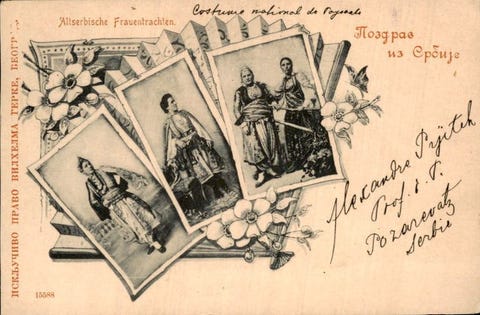 Costume national de Paysans
Altserbische Frauentrachten.
Поздрав
из Србије
ИСКЉУЧИВО ПРАВО ВИЛХЕЛМА ГЕРКЕ, БЕОГРАД
Alexandre
Prof. e. P.
Pozarevatz
Serbie
15588